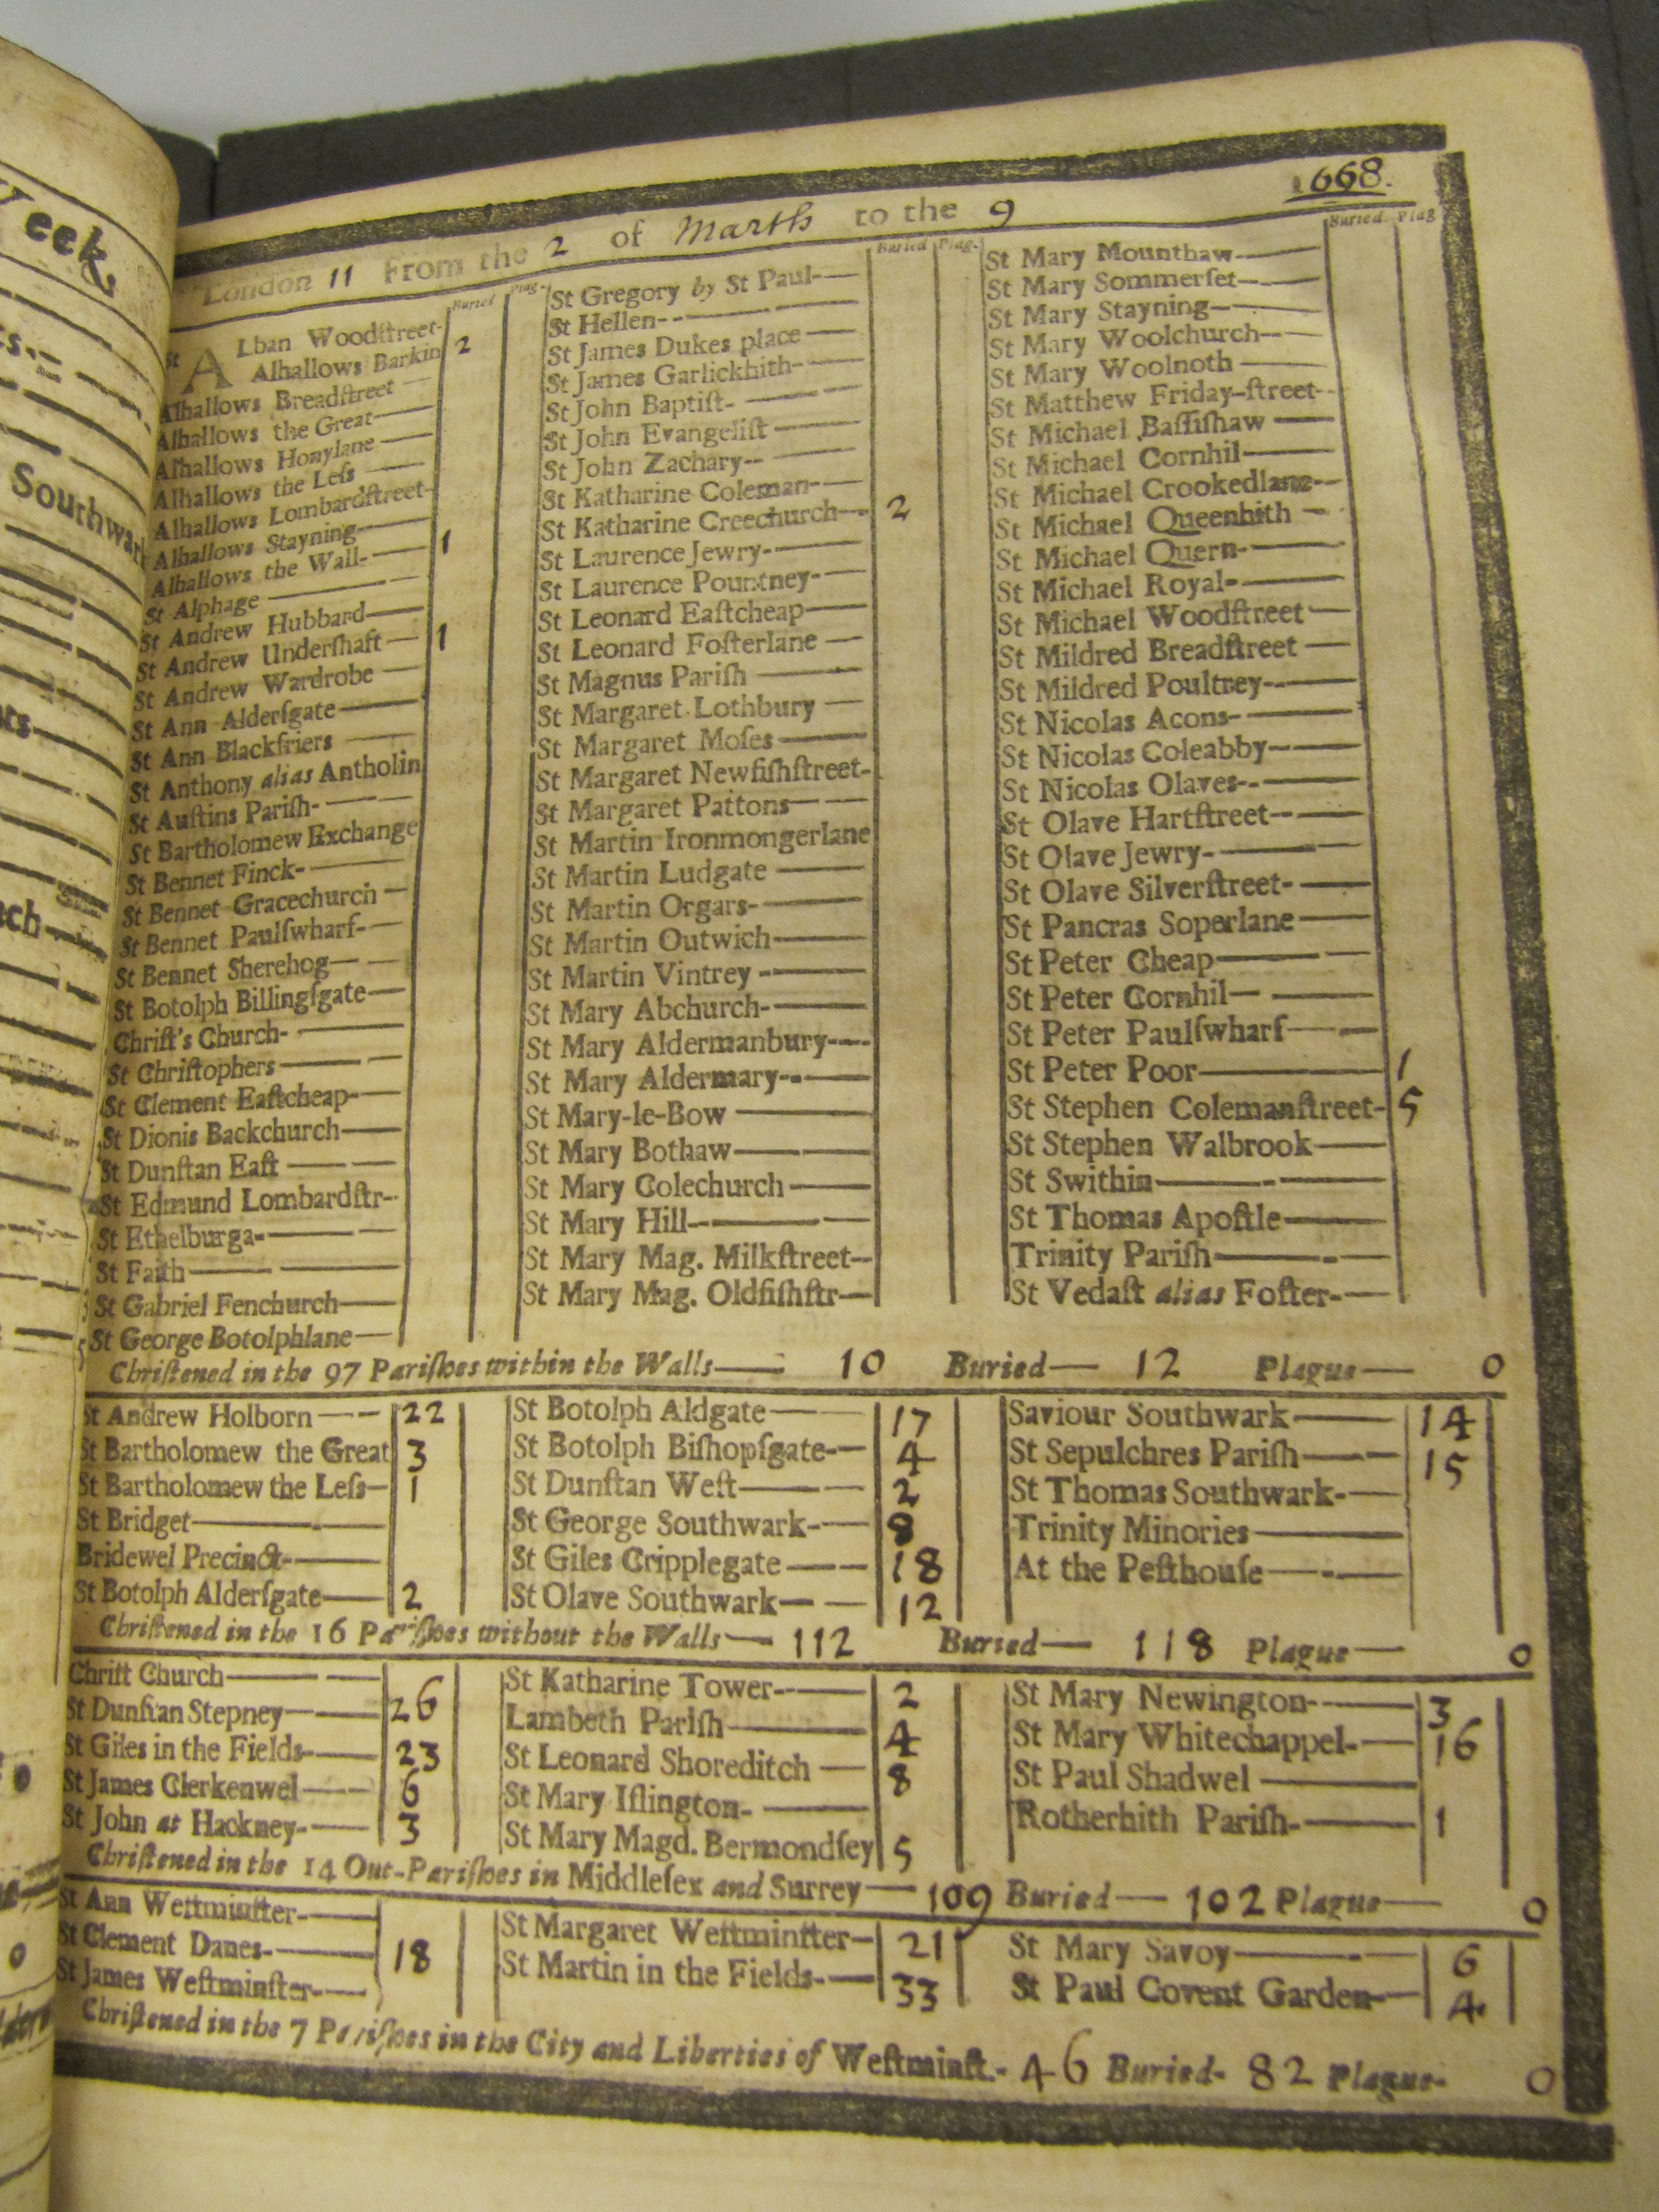 eek,
Southwark
1668.
London 11 From the 2 of March to the 9
Buried Plag.
St ALban Woodſtreet-
Alhallows Barkin 2
Alhallows Breadſtreet —
Alhallows the Great —
Alhallows Honylane —
Alhallows the Leſs —
Alhallows Lombardſtreet-
Alhallows Stayning —
Alhallows the Wall- — 1
St Alphage —
St Andrew Hubbard —
St Andrew Underſhaft — 1
St Andrew Wardrobe —
St Ann Alderſgate —
St Ann Blackfriers —
St Anthony alias Antholin
St Auſtins Pariſh- —
St Bartholomew Exchange
St Bennet Finck- —
St Bennet Gracechurch —
St Bennet Paulſwharf- —
St Bennet Sherehog —
St Botolph Billingſgate —
Chriſt's Church- —
St Chriſtophers —
St Clement Eaſtcheap- —
St Dionis Backchurch —
St Dunſtan Eaſt —
St Edmund Lombardſtr-
St Ethelburga- —
St Faith —
St Gabriel Fenchurch —
St George Botolphlane —
Buried Plag.
St Gregory by St Paul- —
St Hellen- —
St James Dukes place —
St James Garlickhith- —
St John Baptiſt- —
St John Evangeliſt —
St John Zachary- —
St Katharine Coleman- —
St Katharine Creechurch — 2
St Laurence Jewry- —
St Laurence Pountney- —
St Leonard Eaſtcheap —
St Leonard Foſterlane —
St Magnus Pariſh —
St Margaret Lothbury —
St Margaret Moſes —
St Margaret Newfiſhſtreet-
St Margaret Pattons —
St Martin Ironmongerlane
St Martin Ludgate —
St Martin Orgars- —
St Martin Outwich —
St Martin Vintrey - —
St Mary Abchurch- —
St Mary Aldermanbury- —
St Mary Aldermary- —
St Mary-le-Bow —
St Mary Bothaw —
St Mary Colechurch —
St Mary Hill- —
St Mary Mag. Milkſtreet-
St Mary Mag. Oldfiſhſtr —
Buried Plag
St Mary Mounthaw- —
St Mary Sommerſet- —
St Mary Stayning —
St Mary Woolchurch —
St Mary Woolnoth —
St Matthew Friday-ſtreet-
St Michael Baſſiſhaw —
St Michael Cornhil —
St Michael Crookedlane-
St Michael Queenhith —
St Michael Quern- —
St Michael Royal- —
St Michael Woodſtreet —
St Mildred Breadſtreet —
St Mildred Poultrey- —
St Nicolas Acons- —
St Nicolas Coleabby- —
St Nicolas Olaves- —
St Olave Hartſtreet- —
St Olave Jewry- —
St Olave Silverſtreet- —
St Pancras Soperlane —
St Peter Cheap —
St Peter Cornhil —
St Peter Paulſwharf —
St Peter Poor — 1
St Stephen Colemanſtreet- 5
St Stephen Walbrook —
St Swithin —
St Thomas Apoſtle —
Trinity Pariſh —
St Vedaſt alias Foſter- —
Chriſtened in the 97 Pariſhes within the Walls — 10 Buried — 12 Plague — 0
St Andrew Holborn — 22
St Bartholomew the Great 3
St Bartholomew the Leſs — 1
St Bridget —
Bridewel Precinct- —
St Botolph Alderſgate — 2
St Botolph Aldgate — 17
St Botolph Biſhopſgate- — 4
St Dunſtan Weſt — 2
St George Southwark- — 8
St Giles Cripplegate — 18
St Olave Southwark — 12
Saviour Southwark — 14
St Sepulchres Pariſh — 15
St Thomas Southwark- —
Trinity Minories —
At the Peſthouſe —
Chriſtened in the 16 Pariſhes without the Walls — 112 Buried — 118 Plague — 0
Chriſt Church —
St Dunſtan Stepney — 26
St Giles in the Fields- — 23
St James Clerkenwel — 6
St John at Hackney- — 3
St Katharine Tower- — 2
Lambeth Pariſh — 4
St Leonard Shoreditch — 8
St Mary Iſlington- —
St Mary Magd. Bermondſey 5
St Mary Newington- — 3
St Mary Whitechappel- — 16
St Paul Shadwel —
Rotherhith Pariſh- — 1
Chriſtened in the 14 Out-Pariſhes in Middleſex and Surrey — 109 Buried — 102 Plague — 0
St Ann Weſtminſter- —
St Clement Danes- — 18
St James Weſtminſter- —
St Margaret Weſtminſter — 21
St Martin in the Fields- — 33
St Mary Savoy — 6
St Paul Covent Garden — 4
Chriſtened in the 7 Pariſhes in the City and Liberties of Weſtminſt.- 46 Buried- 82 Plague- 0